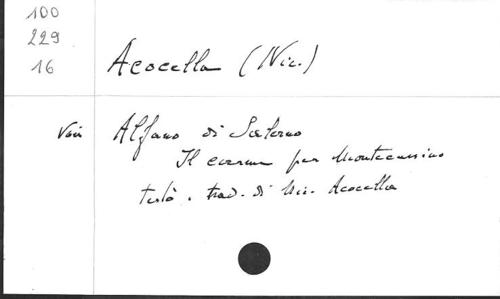 100
229
16
Acocella (Nic.)
Voir Alfano di Salerno
Il carme per Montecassino
testo . trad. di Nic. Acocella